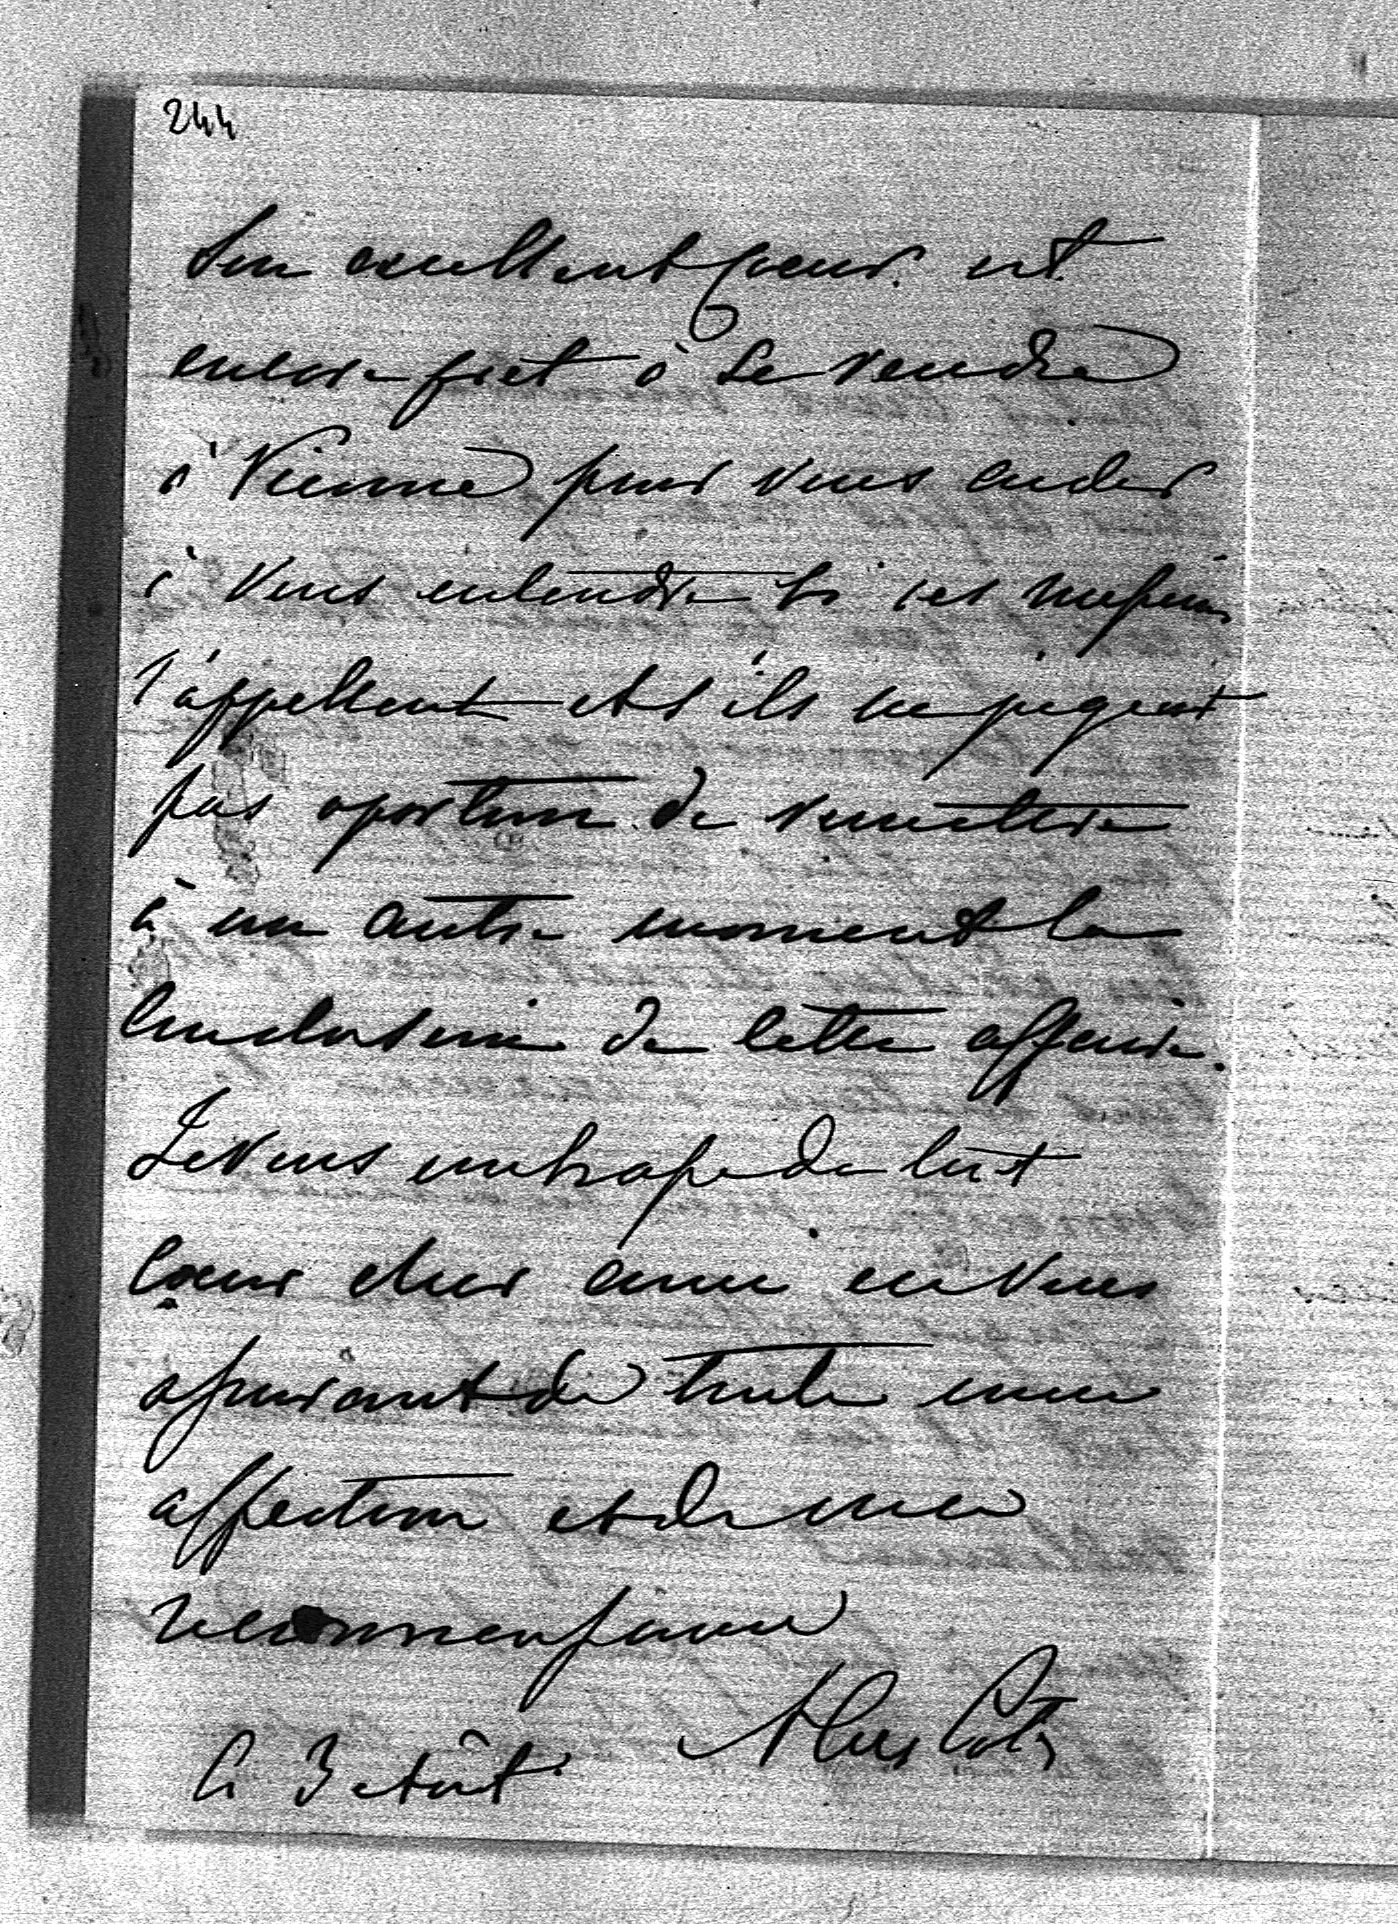 244
Son excellent coeur est
encore prêt à se rendre
à Vienne pour vous aider
à vous entendre si ces messieurs
l'appellent et s'ils ne jugent
pas oportun de remettre
à un autre moment la
conclusion de cette affaire.
Je vous embrasse de tout
coeur cher ami en vous
assurant de toute mon
affection et de ma
reconnaissance
Le 3 Août